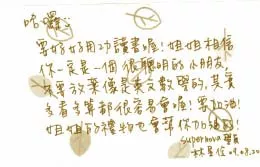 哈囉:
要好好用功讀書喔!姐姐相信
你一定是一個很聰明的小朋友,
不要放棄像是英文數學的,其實
多看多算都很容易會喔!要加油!
姐姐的禮物也會幫你加油的!
supernova
林星位 09.08.20